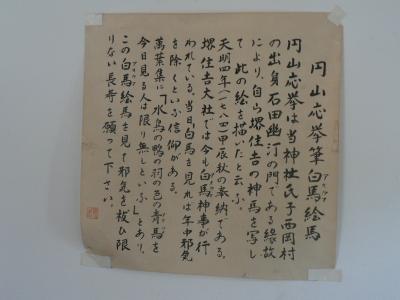 円山応挙筆白馬絵馬
円山応挙は当神社氏子西岡村
の出身石田幽汀の門である縁故
により、自ら堺住吉の神馬を写し
て此の絵を描いたと云ふ。
天明四年(一七八四)甲辰秋の奉納である。
堺住吉大社では今も白馬神事が行
われている。当日、白馬を見れば年中邪気
を除くといふ信仰がある。
萬葉集に「水鳥の鴨の羽の色の青馬を
今日見る人は限り無しといふ」とあり、
この白馬絵馬を見て邪気を祓ひ限
りない長寿を願って下さい。